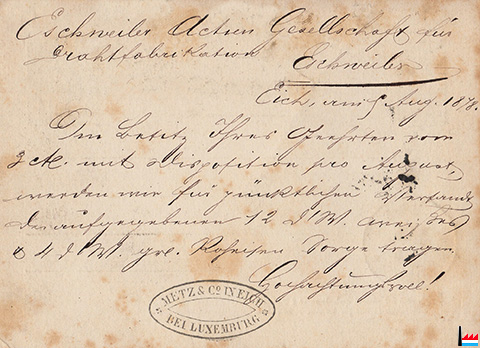 Eschweiler Actien Gesellschaft für
Drahtfabrikation
Eschweiler
Eich, am 5 Aug. 1878.
Im Besitz Ihres Geehrten vom
3 ct. mit Disposition pro August,
werden wir für pünktlichen Versandt
der aufgegebenen 12 d/W.
& 4 d/W. Roheisen Sorge tragen.
Hochachtungsvoll!
METZ & Co IN EICH
BEI LUXEMBURG